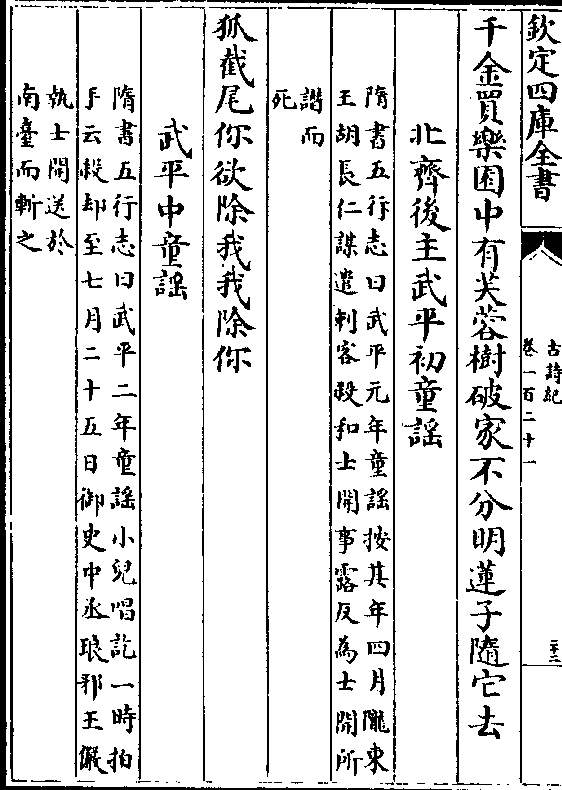 欽定四庫全書
古詩紀
卷一百二十一
二十二
千金買樂園中有芙蓉樹破家不分明蓮子隨它去
北齊後主武平初童謡
隋書五行志曰武平元年童謡按其年四月隴東
王胡長仁謀遣刺客殺和士開事露反為士開所
譖而
死
狐截尾你欲除我我除你
武平中童謡
隋書五行志曰武平二年童謡小兒唱訖一時拍
手云殺却至七月二十五日御史中丞琅邪王儼
執士開送於
南臺而斬之